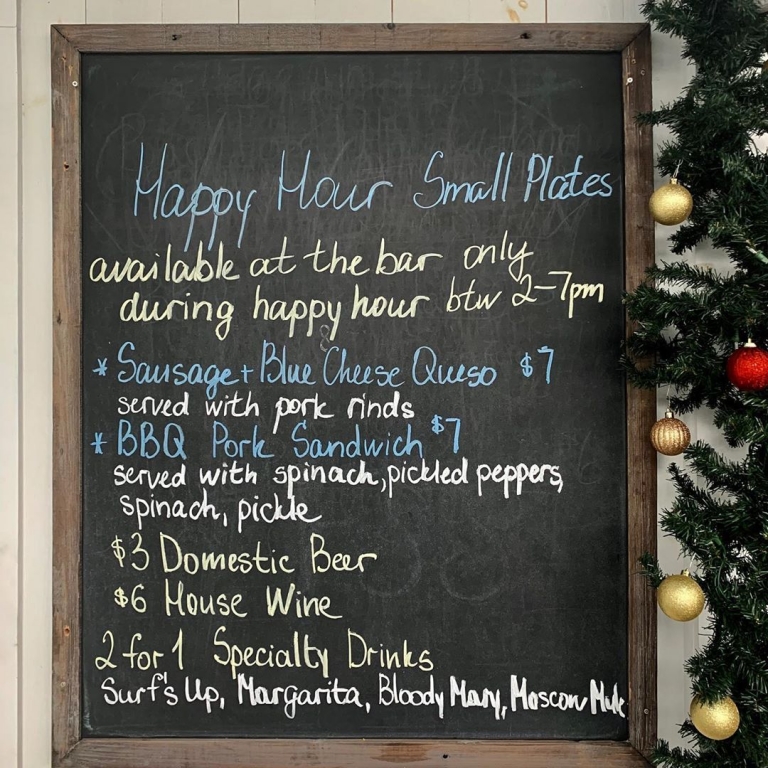 Happy Hour Small Plates
available at the bar only
during happy hour btw 2-7pm
* Sausage + Blue Cheese Queso $7
served with pork rinds
* BBQ Pork Sandwich $7
served with spinach, pickled peppers,
spinach, pickle
$3 Domestic Beer
$6 House Wine
2 for 1 Specialty Drinks
Surf's Up, Margarita, Bloody Mary, Moscow Mule